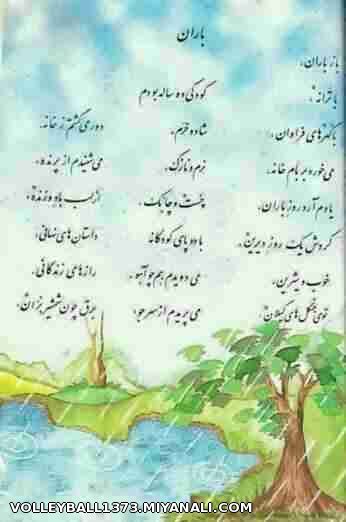 باران
باز باران،
با ترانه،
با گهرهای فراوان،
می‌خورد بر بام خانه.
یادم آرد روز باران
گردش یک روز دیرین،
خوب و شیرین،
توی جنگل‌های گیلان
کودکی ده ساله بودم
شاد و خرّم،
نرم و نازک،
چست و چابک،
با دو پای کودکانه
می‌دویدم همچو آهو،
می‌پریدم از سر جو،
دور می‌گشتم ز خانه.
می‌شنیدم از پرنده،
از لب باد وزنده،
داستان‌های نهانی،
رازهای زندگانی.
برق چون شمشیر بران
VOLLEYBALL1373.MIYANALI.COM